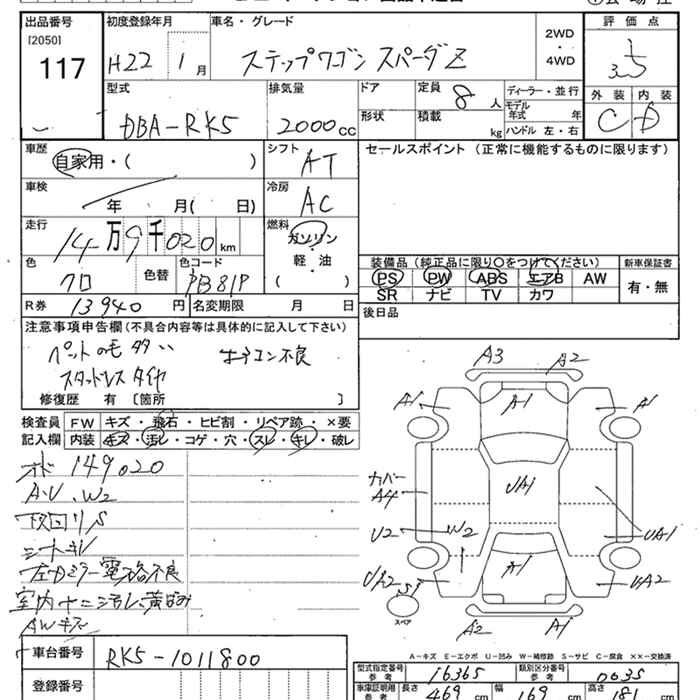 出品番号 初度登録年月 車名・グレード 評価点
[2050]
117 H22年 1月 ステップワゴン スパーダZ 2WD・4WD 3.5
型式 排気量 ドア 定員 8人 ディーラー・並行 外装 内装
DBA-RK5 2000cc 形状 積載 kg モデル年式 年 C D
ハンドル 左・右
車歴 シフト セールスポイント (正常に機能するものに限ります)
自家用・( ) AT
車検 冷房
年 月( 日) AC
走行 燃料
14万9千020km ガソリン
軽・油
( )
色 色替 色コード 装備品 (純正品に限り○をつけてください) 新車保証書
クロ PB81P PS PW ABS エアB AW 有・無
SR ナビ TV カワ
R券 13940円 名変期限 月 日 後日品
注意事項申告欄 (不具合内容等は具体的に記入して下さい)
ペットの毛多い エアコン不良
スタッドレスタイヤ
修復歴 有 〔箇所 〕
検査員 FW キズ・飛石・ヒビ割・リペア跡・×要
記入欄 内装 キズ・汚レ・コゲ・穴・スレ・キレ・破レ
オド 149020
A・U・W2
下回りS
シートキレ
左カミラー電格不良
AWキズ
A3 A2
A1 A1 A1
カバー
A4 UA1
U2 W2 UA1
UA2 S1 A1 UA2
スペア A2 A1
A-キズ E-エクボ U-凹み W-補修跡 S-サビ C-腐食 ××-交換済
車台番号 RK5-1011800
型式指定番号 参考 16365 類別区分番号 参考 0635
登録番号 車庫証明用 参考 長さ 469cm 幅 169cm 高さ 181cm